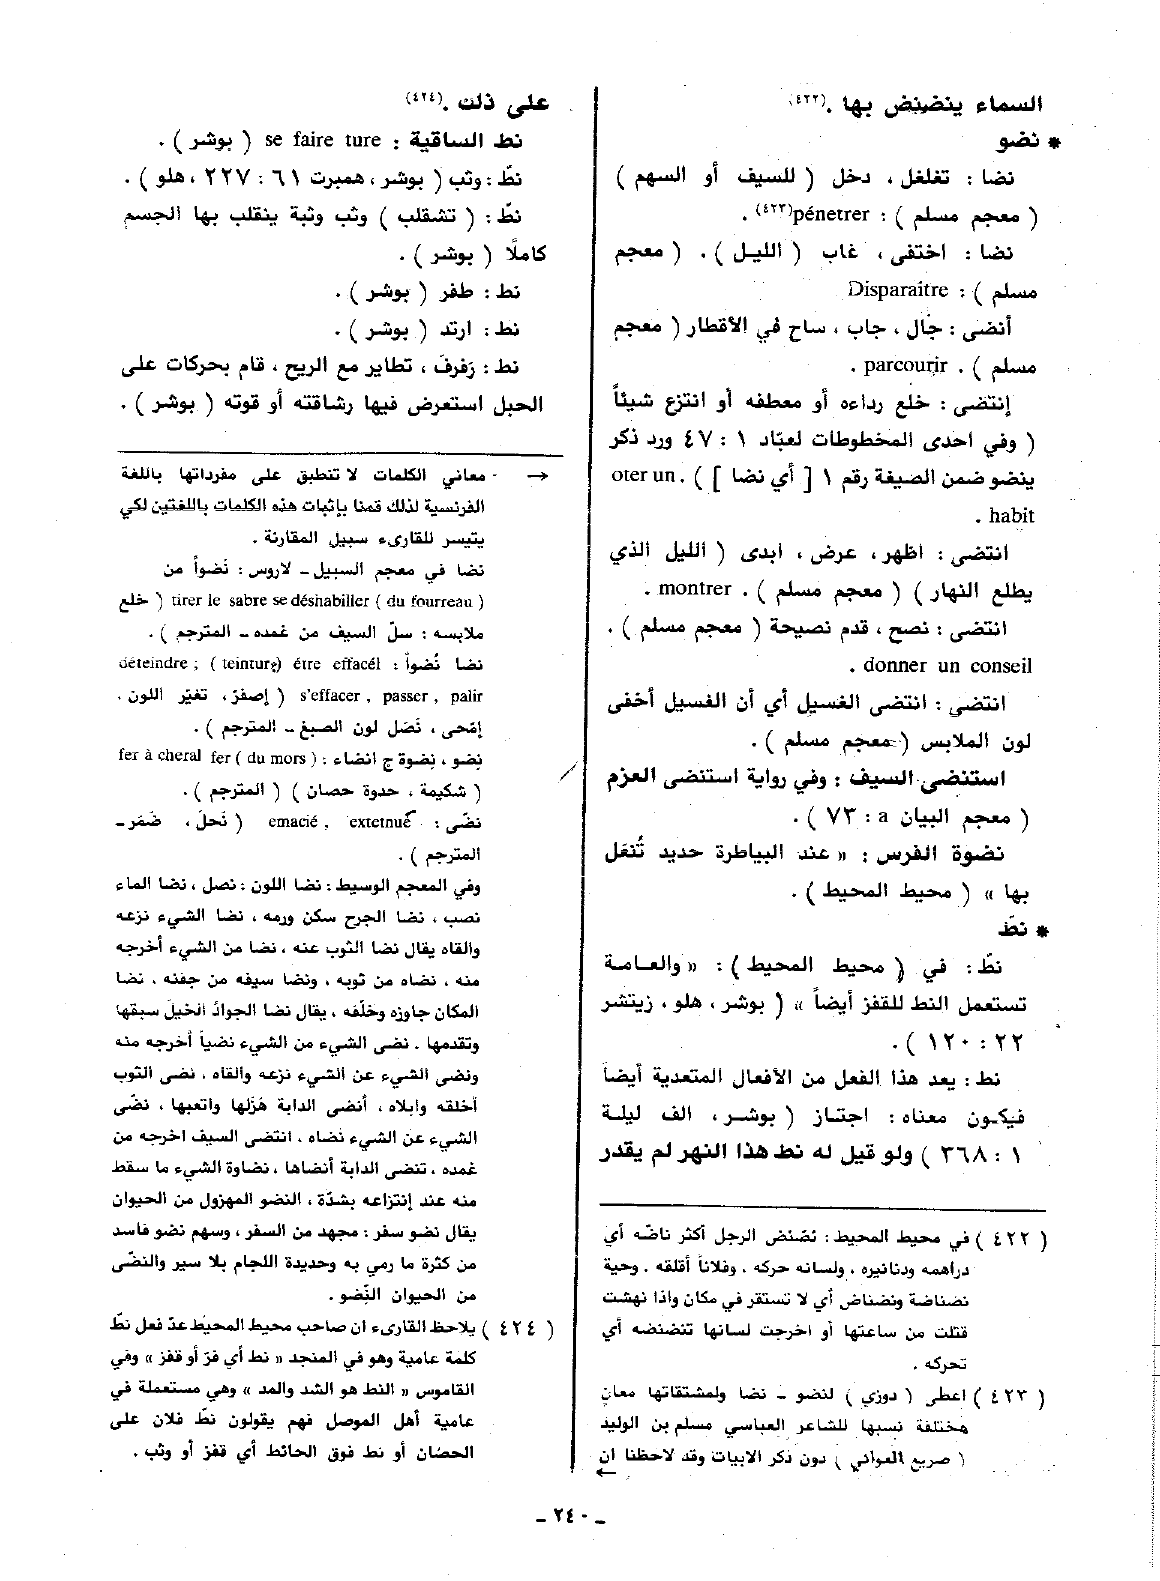 السماء ينضنض بها .(٤٢٢)
* نضو
نضا : تغلغل ، دخل ( للسيف أو السهم )
( معجم مسلم ) : pénetrer(٤٢٣) .
نضا : اختفى ، غاب ( الليل ) . ( معجم
مسلم ) : Disparaitre
أنضى : جَال ، جاب ، ساح في الأقطار ( معجم
مسلم ) . parcourir .
إنتضى : خلع رداءه أو معطفه أو انتزع شيئاً
( وفي احدى المخطوطات لعبّاد ١ : ٤٧ ورد ذكر
ينضو ضمن الصيغة رقم ١ [ أي نضا ] ) . oter un
habit .
انتضى : اظهر ، عرض ، ابدى ( الليل الذي
يطلع النهار ) ( معجم مسلم ) . montrer .
انتضى : نصح ، قدم نصيحة ( معجم مسلم ) .
donner un conseil .
انتضى : انتضى الغسيل أي أن الغسيل أخفى
لون الملابس ( معجم مسلم ) .
استنضى السيف : وفي رواية استنضى العزم
( معجم البيان a : ٧٣ ) .
نضوة الفرس : « عند البياطرة حديد تُنعَل
بها » ( محيط المحيط ) .
* نطّ
نطّ : في ( محيط المحيط ) : « والعامة
تستعمل النط للقفز أيضاً » ( بوشر ، هلو ، زيتشر
٢٢ : ١٢٠ ) .
نط : يعد هذا الفعل من الأفعال المتعدية أيضاً
فيكون معناه : اجتاز ( بوشر ، الف ليلة
١ : ٣٦٨ ) ولو قيل له نط هذا النهر لم يقدر
( ٤٢٢ ) في محيط المحيط : نضنض الرجل أكثر ناضّه أي
دراهمه ودنانيره ، ولسانه حركه ، وفلاناً أقلقه . وحية
نضناضة ونضناض أي لا تستقر في مكان واذا نهشت
قتلت من ساعتها أو اخرجت لسانها تنضنضه أي
تحركه .
( ٤٢٣ ) اعطى ( دوزي ) لنضو ـ نضا ولمشتقاتها معانٍ
مختلفة نسبها للشاعر العباسي مسلم بن الوليد
( صريع الغواني ) دون ذكر الابيات وقد لاحظنا ان
←
على ذلك .(٤٢٤)
نط الساقية : se faire ture ( بوشر ) .
نطّ : وثب ( بوشر ، همبرت ٦١ : ٢٢٧ ، هلو ) .
نطّ : ( تشقلب ) وثب وثبة ينقلب بها الجسم
كاملًا ( بوشر ) .
نط : طفر ( بوشر ) .
نط : ارتد ( بوشر ) .
نط : رَفرفَ ، تطاير مع الريح ، قام بحركات على
الحبل استعرض فيها رشاقته أو قوته ( بوشر ) .
→ معاني الكلمات لا تنطبق على مفرداتها باللغة
الفرنسية لذلك قمنا بإثبات هذه الكلمات باللغتين لكي
يتيسر للقارىء سبيل المقارنة .
نضا في معجم السبيل ـ لاروس : نَضواً من
tirer le sabre se déshabiller ( du fourreau ) ( خلع
ملابسه : سلّ السيف من غمده ـ المترجم ) .
نضا نُضواً : déteindre ; ( teinture) étre effacél
s'effacer , passer , palir ( إصفرّ ، تغيّر اللون .
إمّحى ، نَصَل لون الصبغ ـ المترجم ) .
نِضو ، نِضوة ج انضاء : fer à cheral fer ( du mors )
( شكيمة ، حدوة حصان ) ( المترجم ) .
نضّى : emacié , extetnué ( نَحلَ ، ضَمَر ـ
المترجم ) .
وفي المعجم الوسيط : نضا اللون : نصل ، نضا الماء
نصب ، نضا الجرح سكن ورمه ، نضا الشيء نزعه
والقاه يقال نضا الثوب عنه ، نضا من الشيء أخرجه
منه ، نضاه من ثوبه ، ونضا سيفه من جفنه ، نضا
المكان جاوزه وخلّفه ، يقال نضا الجوادُ الخيلَ سبقها
وتقدمها . نضى الشيء من الشيء نضياً أخرجه منه
ونضى الشيء عن الشيء نزعه والقاه ، نضى الثوب
أخلقه وابلاه ، أنضى الدابة هَزَلها واتعبها ، نضّى
الشيء عن الشيء نضاه ، انتضى السيف اخرجه من
غمده ، تنضى الدابة أنضاها ، نضاوة الشيء ما سقط
منه عند إنتزاعه بشدّة ، النضو المهزول من الحيوان
يقال نضو سفر : مجهد من السفر ، وسهم نضو فاسد
من كثرة ما رمي به وحديدة اللجام بلا سير والنضى
من الحيوان النِّضو .
( ٤٢٤ ) يلاحظ القارىء ان صاحب محيط المحيط عدّ فعل نطّ
كلمة عامية وهو في المنجد « نط أي فرّ أو قفز » وفي
القاموس « النط هو الشد والمد » وهي مستعملة في
عامية أهل الموصل فهم يقولون نطّ فلان على
الحصان أو نط فوق الحائط أي قفز أو وثب .
ـ ٢٤٠ ـ